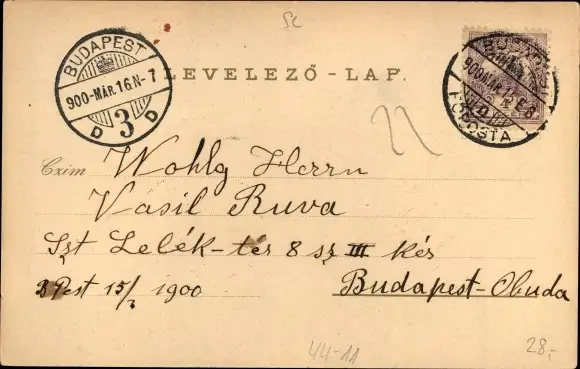 5c
BUDAPEST
900-MÁR.16.N-7
D 3 D
LEVELEZŐ-LAP.
BUDAPEST
900 MÁR.
FŐPOSTA
Czim Wohlg Herrn
Vasil Ruva
Szt Lelék-tér 8 sz III kér
BPest 15/3 1900 Budapest-Obuda
44-11
28,-